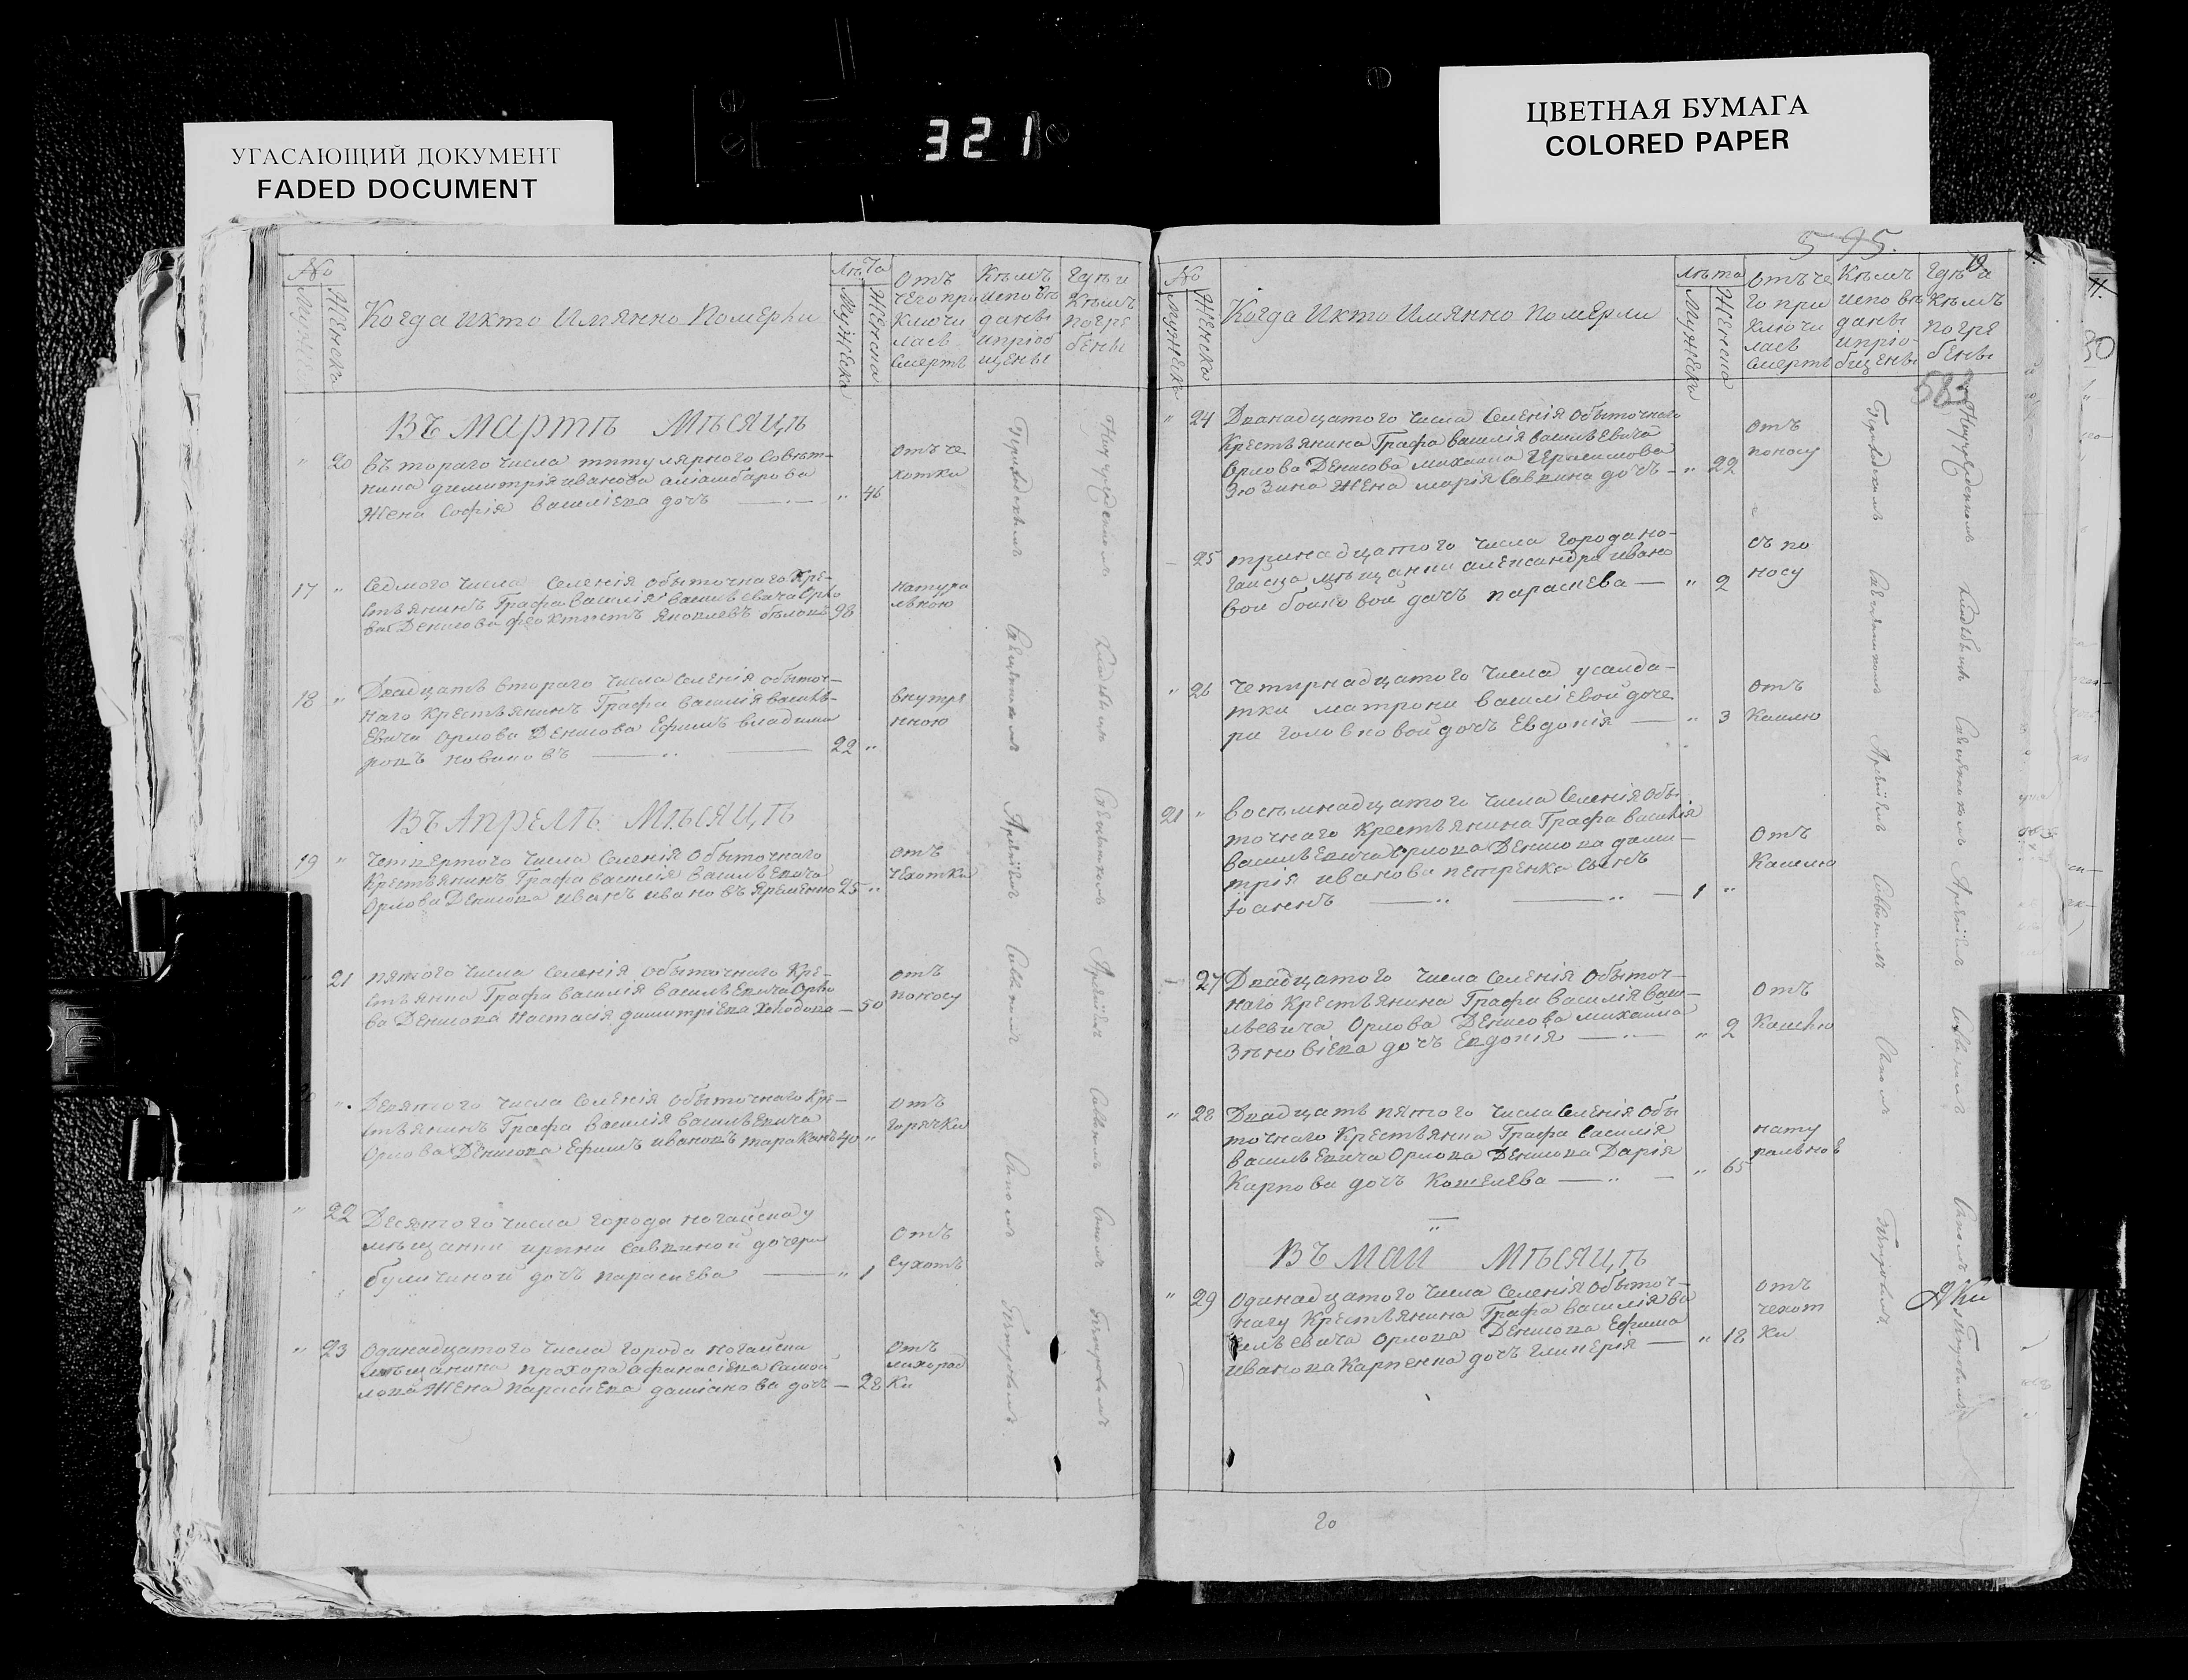 УГАСАЮЩИЙ ДОКУМЕНТ
FADED DOCUMENT
321
ЦВЕТНАЯ БУМАГА
COLORED PAPER
№
Мужеска
Женска
Когда и кто имянно померли
Лѣта
Мужеска
Женска
Отъ
чего при
ключи
лась
смерть
Кѣмъ
исповѣ
даны
и пріоб
щены
Гдѣ и
кѣмъ
погре
бены
Въ Мартѣ Мѣсяцѣ
" 20 втораго числа титулярного совѣт-
ника димитрія иванова
жена софія василіева дочь " 46
отъ че
хотки
17 " Седмого числа селенія обыточнаго кре-
стьянинъ Графа василія васильевича орло
ва Денисова феоктистъ яковлевъ 98
натура
льною
18 " Двадцать втораго числа селенія обыточ-
наго крестьянинъ Графа василія василь-
евича орлова Денисова Ефимъ владими
ровъ новиковъ 22 "
внутре
нною
Въ Апрелѣ Мѣсяцѣ
19 " четвертого числа селенія обыточнаго
крестьянинъ Графа василія васильевича
Орлова Денисова иванъ ивановъ яременко 25 "
отъ
чехотки
" 21 пятого числа селенія обыточнаго кре-
стьянка Графа василія васильевича орло
ва Денисова настасія димитріева холодова — 50
отъ
поносу
". Девятого числа селенія обыточнаго кре-
стьянинъ Графа василія васильевича
орлова Денисова Ефимъ ивановъ таракань 40 "
отъ
горячки
" 22 Десятого числа города ногайска у
мѣщанки ирини савиной дочери
буличиной дочь параскева " 1
отъ
сухотъ
" 23 одинадцатого числа города ногайска
мѣщанина прохора афанасіева самой
лова жена параскева даміанова дочь — 28
отъ
лихорад
ки
Григоріевскимъ Священникомъ Арсеніемъ
595.
№
Мужеска
Женска
Когда и кто имянно померли
Лѣта
Мужеска
Женска
Отъ че
го при
ключи
лась
смерть
Кѣмъ
исповѣ
даны
и пріо-
бщены
Гдѣ и
кѣмъ
погре
бены
" 24 Двенадцатого числа селенія обыточнаго
крестьянина Графа василія васильевича
орлова Денисова михаила
Зюзина жена марія савина дочь — " 22
отъ
поносу
25 тринадцатого числа города но-
гайска мѣщанки александри ивано
вой бойковой дочь параскева — " 2
съ по
носу
" 26 четирнадцатого числа у салда-
тки матрони василіевой доче
ри головковой дочь Евдокія — " 3
отъ
кашлю
21 " восьмнадцатого числа селенія обы
точнаго крестьянина Графа василія
васильевича орлова Денисова дими-
трія иванова петренка сынъ
Іоаннъ — 1 "
отъ
кашлю
27 Двадцатого числа селенія обыточ-
наго крестьянина Графа василія васи-
льевича орлова Денисова михаила
Зѣновіева дочь Евдокія — " 2
отъ
кашлю
" 28 Двадцать пятого числа селенія обы
точнаго крестьянка Графа василія
васильевича орлова Денисова Дарія
Карпова дочь Кошелева — " 65
нату
ральное
Въ Маи Мѣсяцѣ
" 29 одинадцатого числа селенія обыточ-
наго крестьянина Графа василія ва
сильевича орлова Денисова Ефима
иванова Карпенка дочь гликерія — " 18
отъ
чехот
ки
20